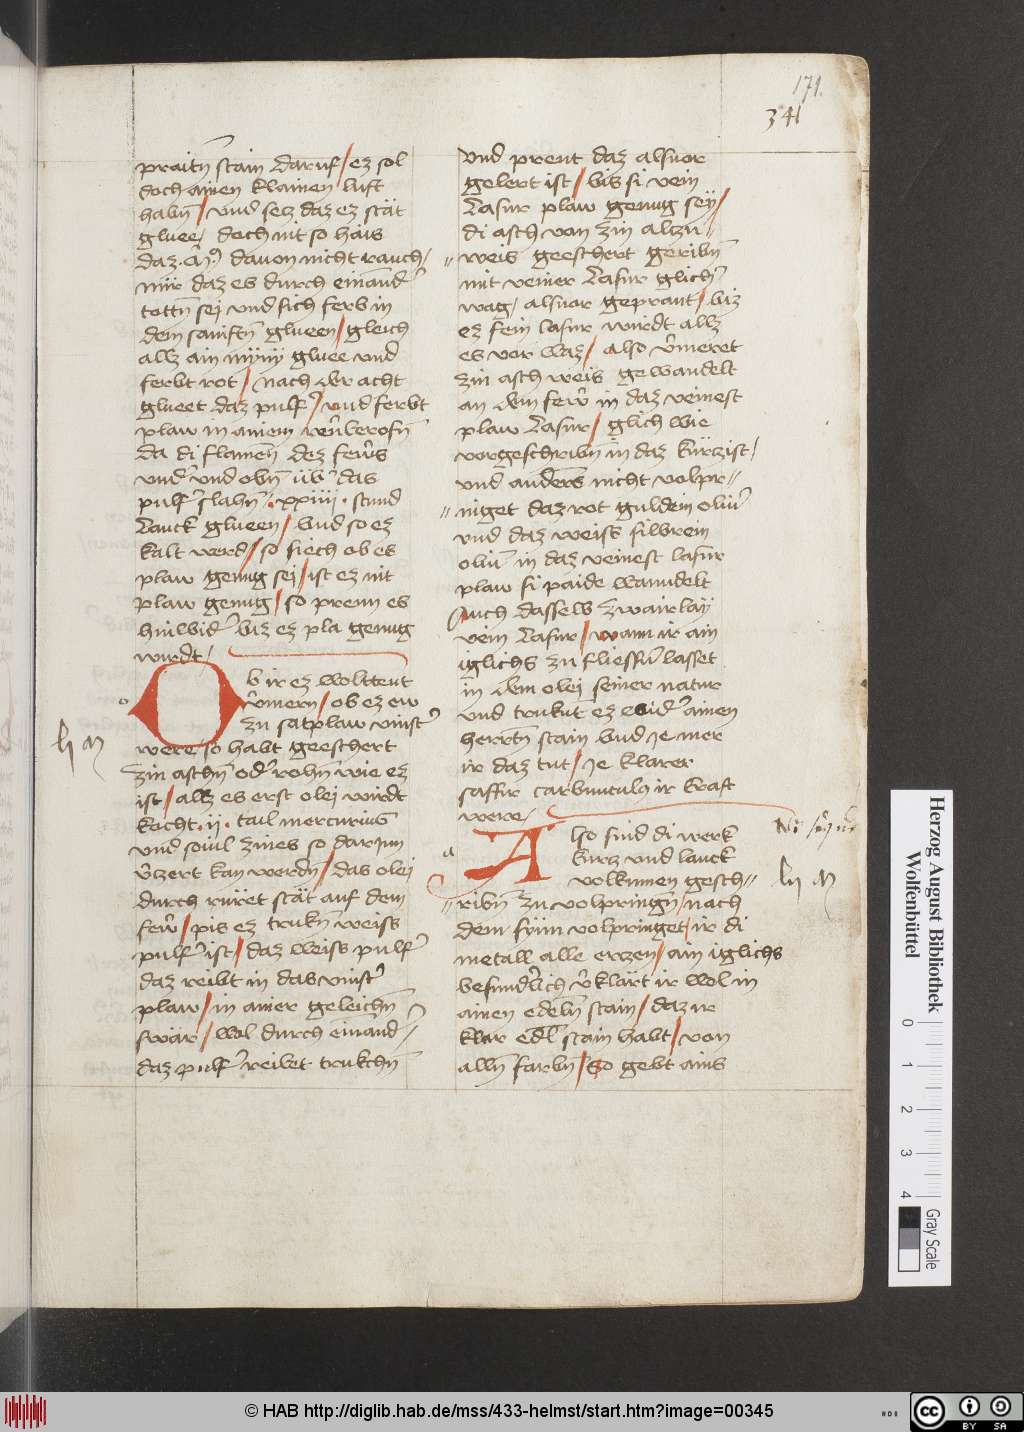 171.
341
praitn̄ stain daruf / ez sol
doch ainen klainen luft
habn̄ / vnd setz daz ez stät
gluee / doch nit so hais
daz · dauon nicht rauch /
nür daz es durch einand'
tottn̄ sei vnd sich ferb in
dem sanftn̄ glueen / gleich
allz ain gluee vnd
ferbt rot / nach der acht
glueet daz pulf' / vnd ferbt
plaw in ainem
da di flamen̄ dez fewrs
vnd' vnd obn̄ üb' das
pulf' slahn̄ · xxiiii · stund
Lanck glueen / vnd so ez
kalt werd / so siech ob es
plaw genug sei / ist ez nit
plaw genug / so prenn es
hinwid' biz ez pla genug
wirdt /
Ob ir ez wolttent
v̄mern̄ / ob ez ew
zu satplaw vinst'
were so habt geeschert
zin aschn̄ od' rohn̄ wie ez
ist / allz es erst olei wirdt
kocht · ii · tail mercurius
vnd souil zines so darinn
v̄zert kan werdn̄ / das olei
durch rüret stät auf dem
fewr / pis ez trukn̄ weiss
pulf' ist / daz weiss pulf'
daz reibt in das vinst'
plaw / in ainer geleichn̄
swär / wol durch einand' /
daz pulf' reibet trukchn̄
vnd prent daz alsuor
gelert ist / bis si vein
Lasur plaw genug sey /
di asch von zin altzu //
// weis geeschert geribn̄
mit veiner Lasur glich'
wag / alsuor geprant / biz
ez fein lasur wirdt allz
es vor waz / also v̄meret
zin asch weis gewandelt
an dem fewr in daz veinest
plaw Lasur / glich wie
vorgeschribn̄ in daz kürzist /
vnd anders nicht volpr //
// niget daz rot guldein oliu'
vnd daz weiss silbrein
oliu' in daz veinest lasur
plaw si paide wanndelt
Auch dasselb zwairlay
vein Lasur / wann ir ain
iglichs zu fliessn̄ lasset
in dem olei seiner natur
vnd truknt ez wid' ainen
herrtn̄ stain vnd ye mer
ir daz tut / ye klarer
saffir carbunculꝰ ir kraft
were /
Also sind di werk
kurz vnd lanck
volkumen gesch //
// ribn̄ zu volpringn̄ / nach
dem sÿnn volpringet / ir di
metall alle erzen / ain iglichs
besund'lich v̄klärt ir wol in
ainen edeln̄ stain / daz ir
klar edl stain habt / von
alln̄ farbn̄ / So gebt ains
Herzog August Bibliothek
Wolfenbüttel
0 1 2 3 4
Gray Scale
© HAB http://diglib.hab.de/mss/433-helmst/start.htm?image=00345
HAB
CC BY SA